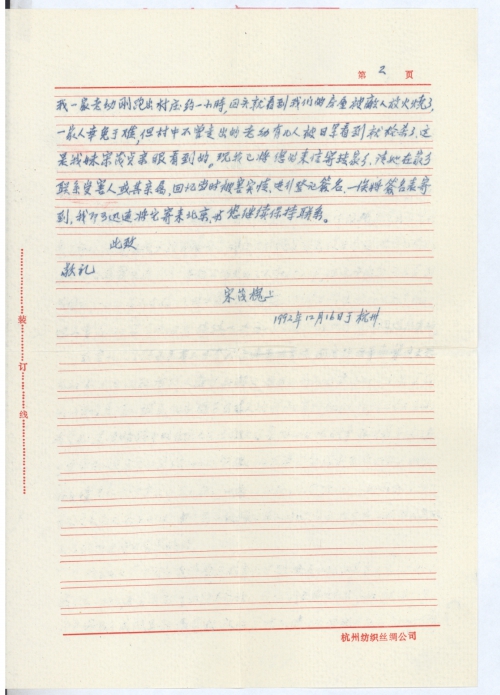 第 2 页
我一家老幼刚跑出村庄约一小时，回头就看到我们的房屋被敌人放火烧了，
一家人幸免于难，但村中不曾走出的老幼有几人被日军看到就枪杀了，这
是我妹宋茂贞亲眼看到的。现我已将你的来信寄给家了，请她在家乡
联系受害人或其亲属，回忆当时被害实情，进行登记签名，一俟将签名表寄
到，我即迅速将它寄来北京，与您继续保持联系。
此致
敬礼
宋茂槐上
1992年12月16日于杭州.
装订线
杭州纺织丝绸公司